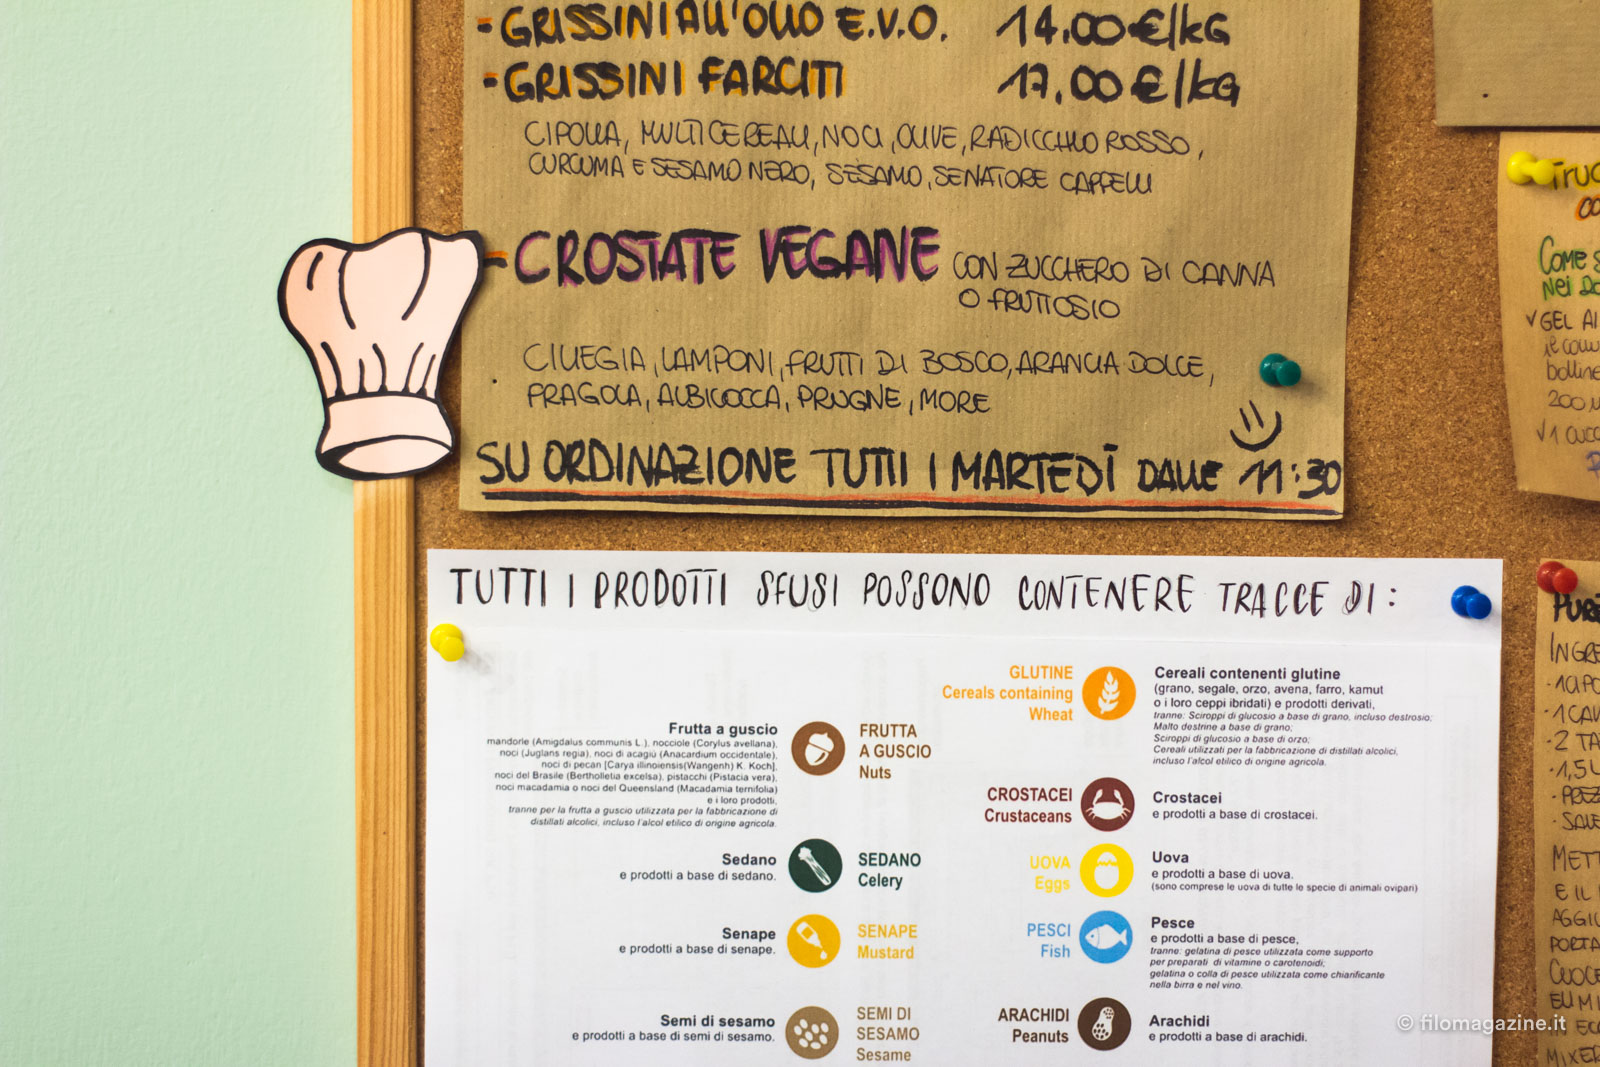 - GRISSINI ALL'OLIO E.V.O. 14,00 €/KG
- GRISSINI FARCITI 17,00 €/KG
CIPOLLA, MULTICEREALI, NOCI, OLIVE, RADICCHIO ROSSO,
CURCUMA E SESAMO NERO, SESAMO, SENATORE CAPPELLI
- CROSTATE VEGANE CON ZUCCHERO DI CANNA
O FRUTTOSIO
CILIEGIA, LAMPONI, FRUTTI DI BOSCO, ARANCIA DOLCE,
FRAGOLA, ALBICOCCA, PRUGNE, MORE
SU ORDINAZIONE TUTTI I MARTEDÌ DALLE 11:30
TUTTI I PRODOTTI SFUSI POSSONO CONTENERE TRACCE DI:
Frutta a guscio
mandorle (Amigdalus communis L.), nocciole (Corylus avellana),
noci (Juglans regia), noci di acagiù (Anacardium occidentale),
noci di pecan [Carya illinoiensis(Wangenh) K. Koch],
noci del Brasile (Bertholletia excelsa), pistacchi (Pistacia vera),
noci macadamia o noci del Queensland (Macadamia ternifolia)
e i loro prodotti,
tranne per la frutta a guscio utilizzata per la fabbricazione di
distillati alcolici, incluso l'alcol etilico di origine agricola.
FRUTTA
A GUSCIO
Nuts
Sedano
e prodotti a base di sedano.
SEDANO
Celery
Senape
e prodotti a base di senape.
SENAPE
Mustard
Semi di sesamo
e prodotti a base di semi di sesamo.
SEMI DI
SESAMO
Sesame
GLUTINE
Cereals containing
Wheat
Cereali contenenti glutine
(grano, segale, orzo, avena, farro, kamut
o i loro ceppi ibridati) e prodotti derivati,
tranne: Sciroppi di glucosio a base di grano, incluso destrosio;
Malto destrine a base di grano;
Sciroppi di glucosio a base di orzo;
Cereali utilizzati per la fabbricazione di distillati alcolici,
incluso l'alcol etilico di origine agricola.
CROSTACEI
Crustaceans
Crostacei
e prodotti a base di crostacei.
UOVA
Eggs
Uova
e prodotti a base di uova.
(sono comprese le uova di tutte le specie di animali ovipari)
PESCI
Fish
Pesce
e prodotti a base di pesce,
tranne: gelatina di pesce utilizzata come supporto
per preparati di vitamine o carotenoidi;
gelatina o colla di pesce utilizzata come chiarificante
nella birra e nel vino.
ARACHIDI
Peanuts
Arachidi
e prodotti a base di arachidi.
COME S
NEI DO
✓ GEL AL
200
✓ 1 CUCC
INGRE
· 1 CIPO
· 2 TA
· 1,5 L
· PREZ
· SALE
METT
E IL
AGGIU
PORTA
CUOCE
MIXER
© filomagazine.it